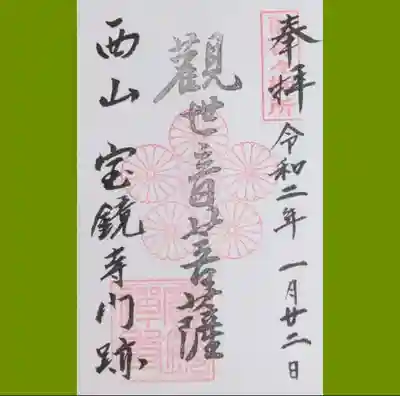 奉拝 令和二年 一月廿二日
觀世音菩薩
西山 宝鏡寺門跡